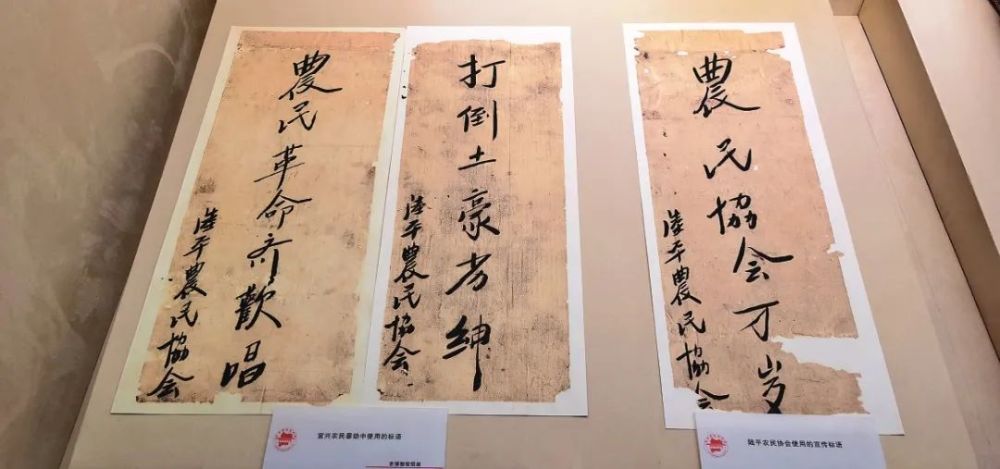 農民革命齐歡唱
陸平農民協会
打倒土豪劣紳
陸平農民協会
農民協会万岁
陸平農民協会
宜兴农民暴动中使用的标语
陆平农民协会使用的宣传标语